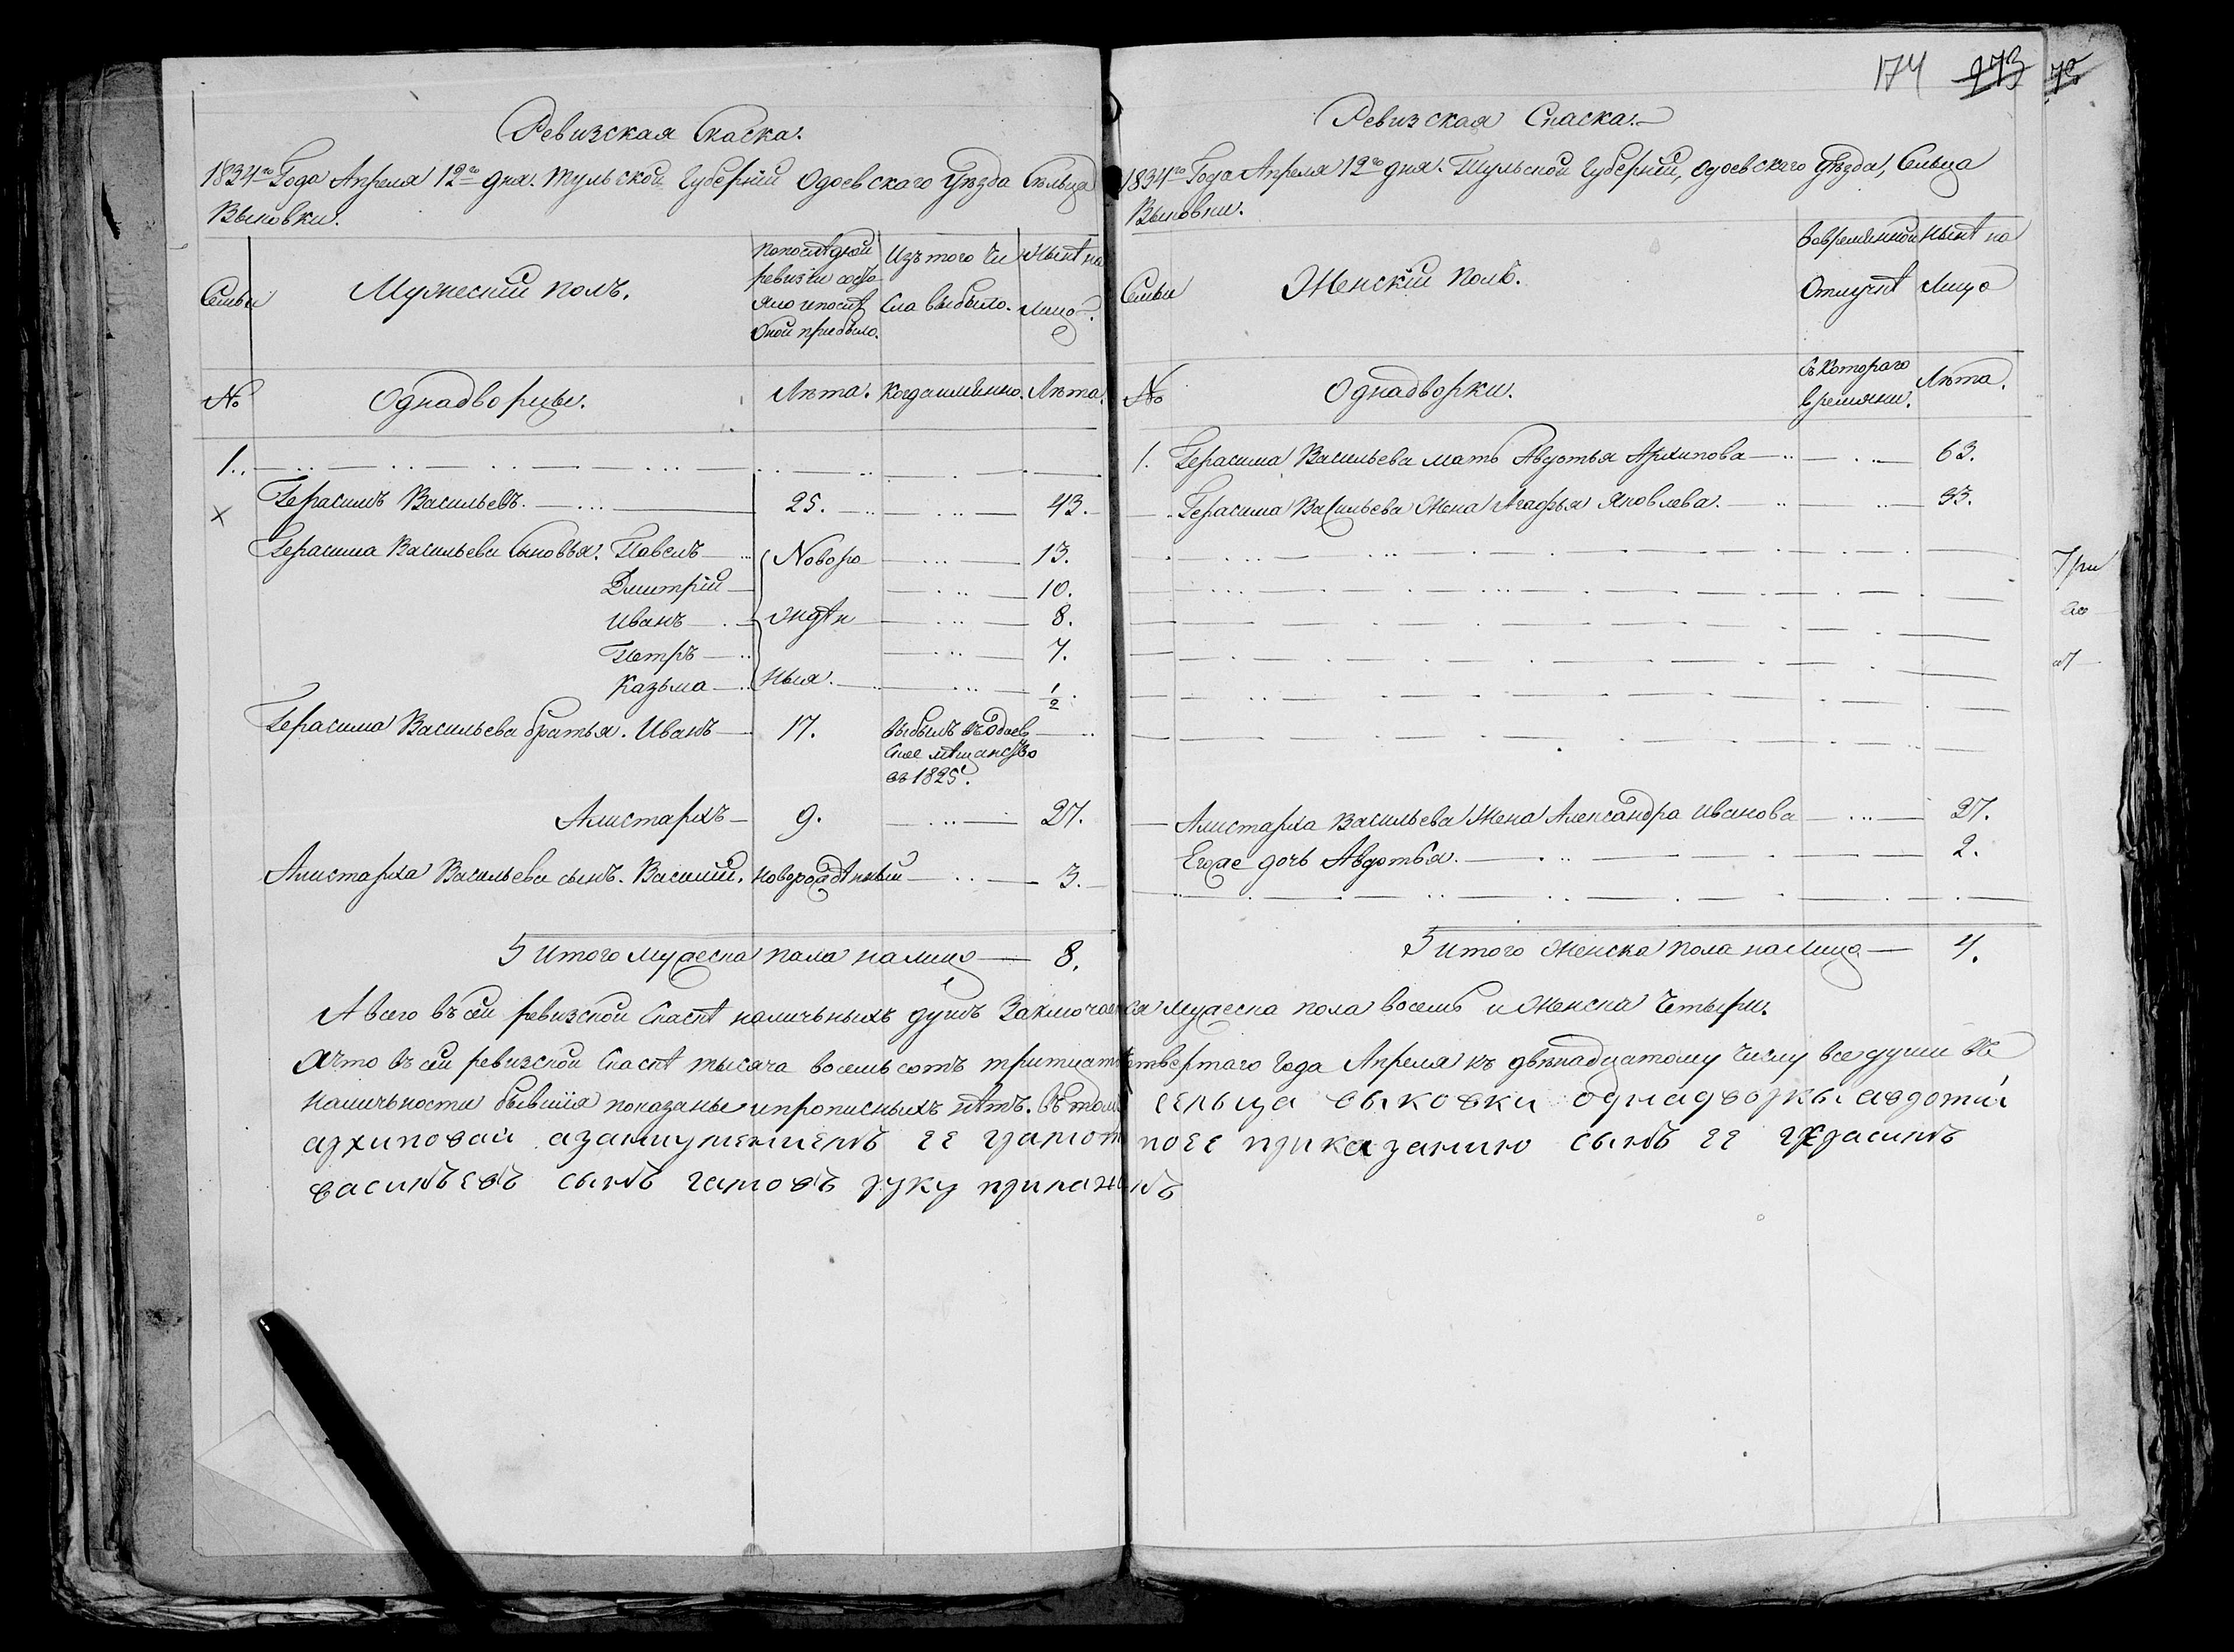 Ревизская Скаска.
1834го Года Апреля 12го дня. Тульской Губернии Одоевскаго Уезда Сельца
Выковки.
Семьи
Мужеский полъ.
Попоследней
ревизiи состо
яло ипослѣ
оной прибыло.
Изътого чи
сла выбыло.
Нынѣ на
лицо.
№
Однадворцы.
Лѣта.
Когда имянно.
Лѣта.
1.
Герасимъ Васильевъ. 25. 43.
Герасима Васильева Сыновья. Павелъ Новоро 13.
Дмитрiй 10.
Иванъ ждѣн 8.
Петръ 7.
Казьма ныя. 1/2.
Герасима Васильева братья. Иванъ 17. выбылъ въ Одоев
ское мѣщанство
въ 1825.
Алистархъ 9. 27.
Алистарха Васильева сынъ. Василий. новорождѣнный 3.
Итого мужеска пола налицо 8.
174 173 72
Ревизская Скаска.
1834го Года Апреля 12го дня. Тульской Губернiй, Одоевскаго Уѣзда, Сельца
Выковки.
Семьи
Женскiй полъ.
вовременной
Отлучкѣ
Нынѣ на
Лицо
№
Однадворки.
съ Котораго
времяни.
Лѣта.
1. Герасима Васильева мать Авдотья Архипова 63.
Герасима Васильева Жена Агафья Яковлева. 33.
Три
ст
Алистарха Васильева Жена Александра Иванова 27.
Егоже дочь Авдотья. 2.
Итого Женска пола налицо 4.
А всего въ сей ревизской Скаскѣ наличьныхъ душъ Заключается мужеска пола восемь и Женска Четыри.
Ачто въ сей ревизской Скаскѣ тысяча восемь сотъ тритцать четвертаго Года Апреля къ двѣнадцатому Числу все души въ
наличьности бывшия показаны ипрописныхъ нѣтъ. Въ томъ сельца выковки однадворкы авдотьи
архиповай азанiумениемъ ее грамот поее приказанию сынъ ее герасимъ
василъевъ сынъ гамовъ руку приложилъ